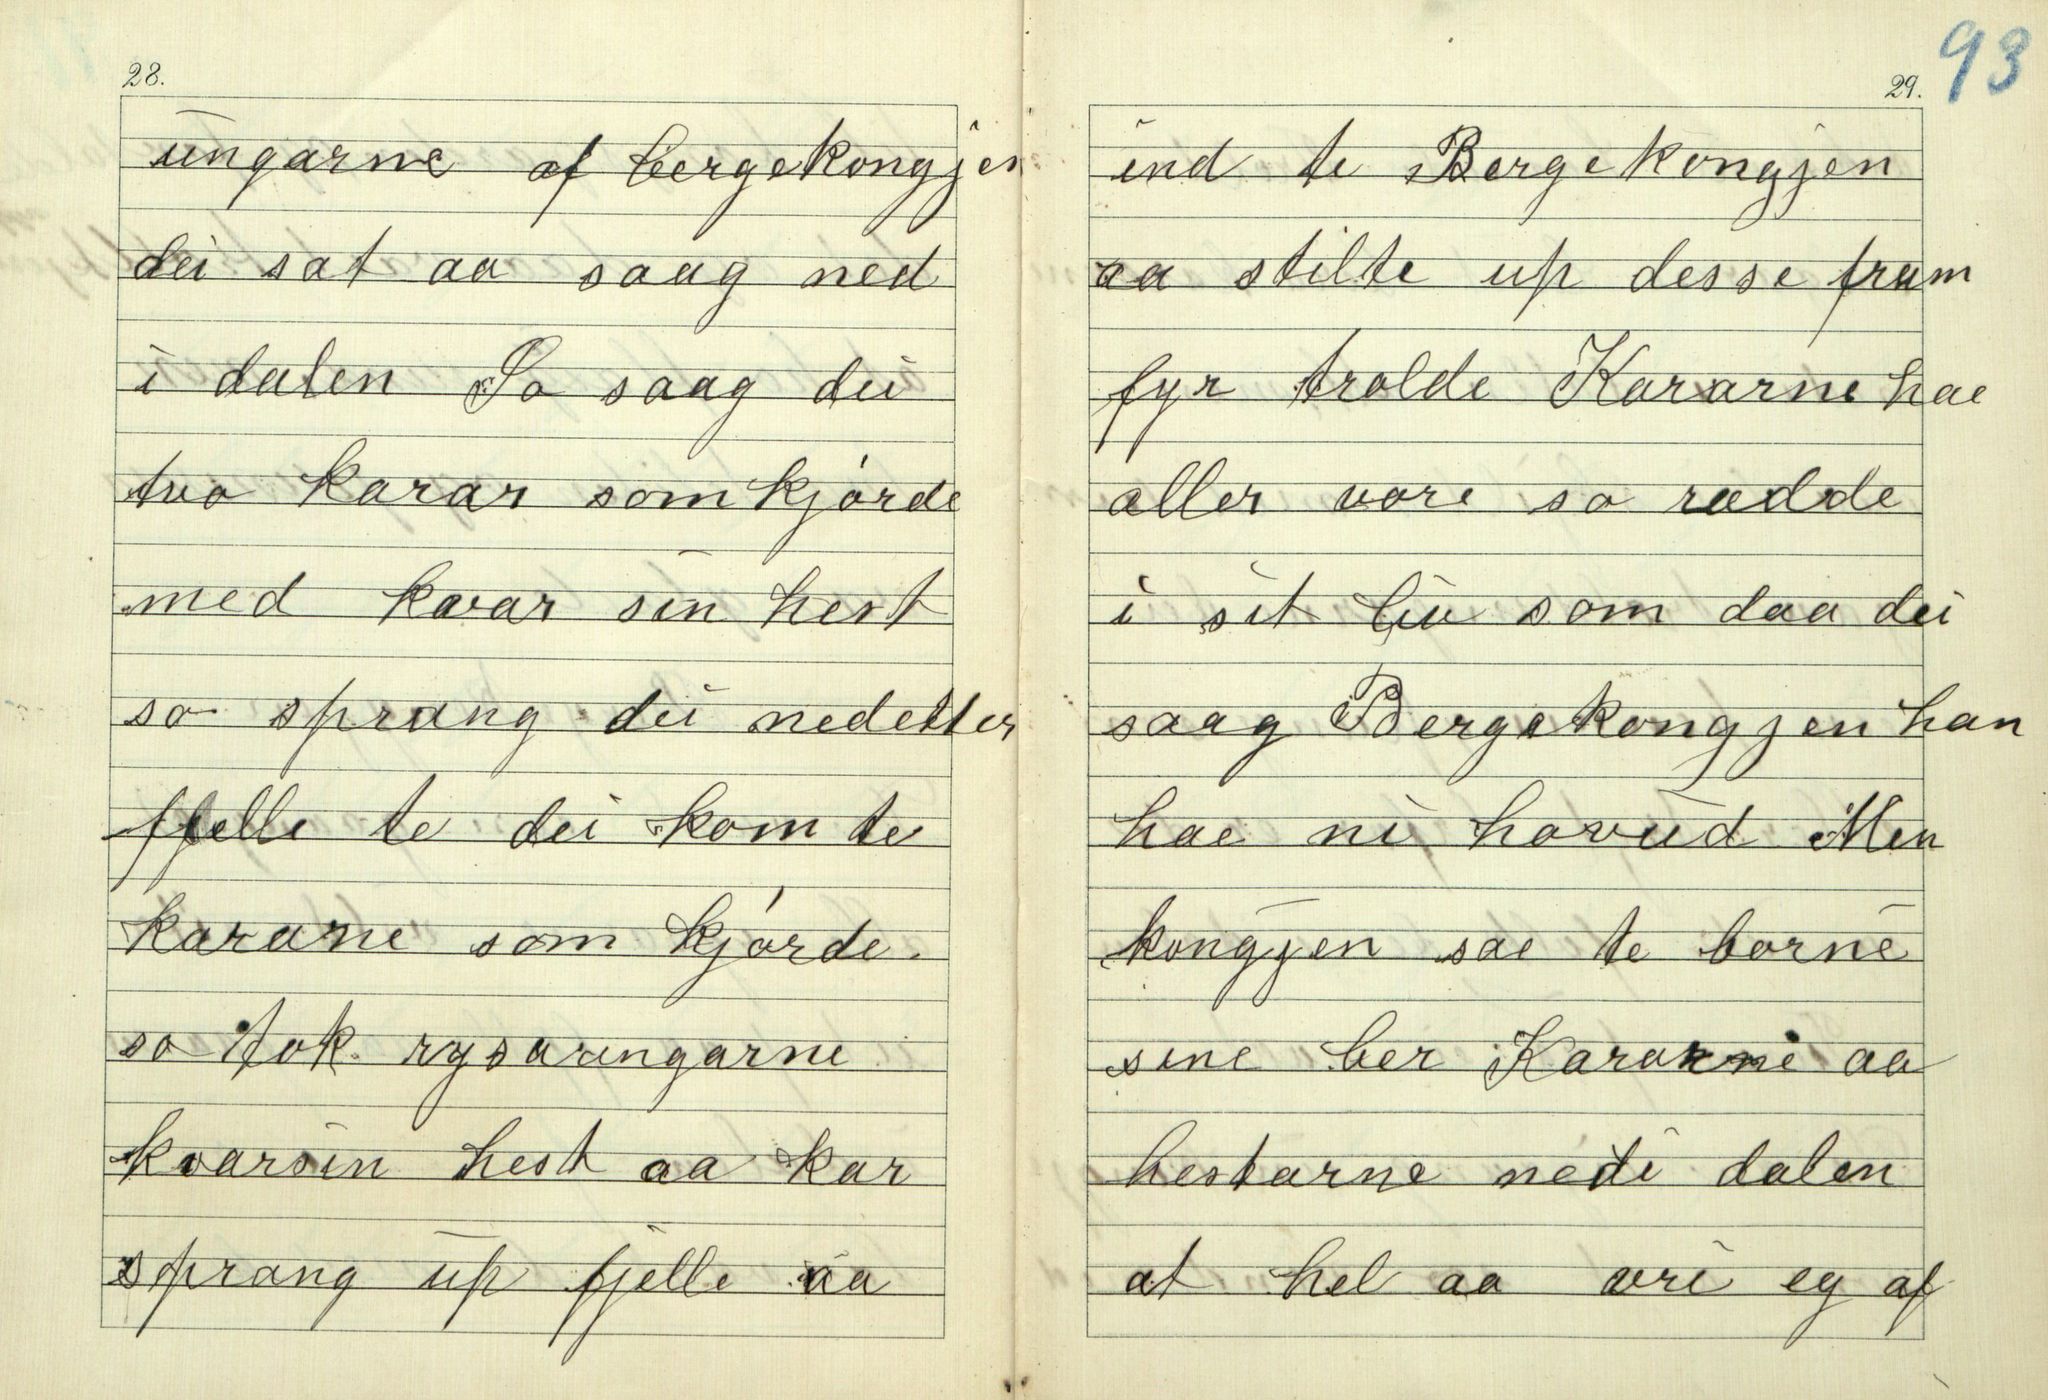 28.
ungarne af bergekongjen
dei sat aa saag ned
i dalen So saag dei
tvo karar som kjórde
med kvar sin hest
so sprang dei nedetter
fjelle te dei kom te
kararne som kjórde.
so tok rysaungarne
kvarsin hest aa kar
sprang up fjelle aa
29. 93
ind te Bergekongjen
aa stilte up desse fram
fyr trolde Kararne hae
aller vore so rædde
i sit liv som daa dei
saag Bergekongjen han
hae ni hovud Men
kongjen sae te borne
sine ber Kararne aa
hestarne nedi dalen
at hel aa vri eg af